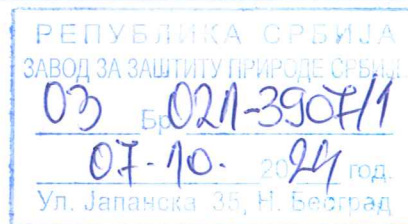 РЕПУБЛИКА СРБИЈА
ЗАВОД ЗА ЗАШТИТУ ПРИРОДЕ СРБИЈЕ
03 Бр. 021-3907/1
07-10- 2024 год.
Ул. Јапанска 35, Н. Београд